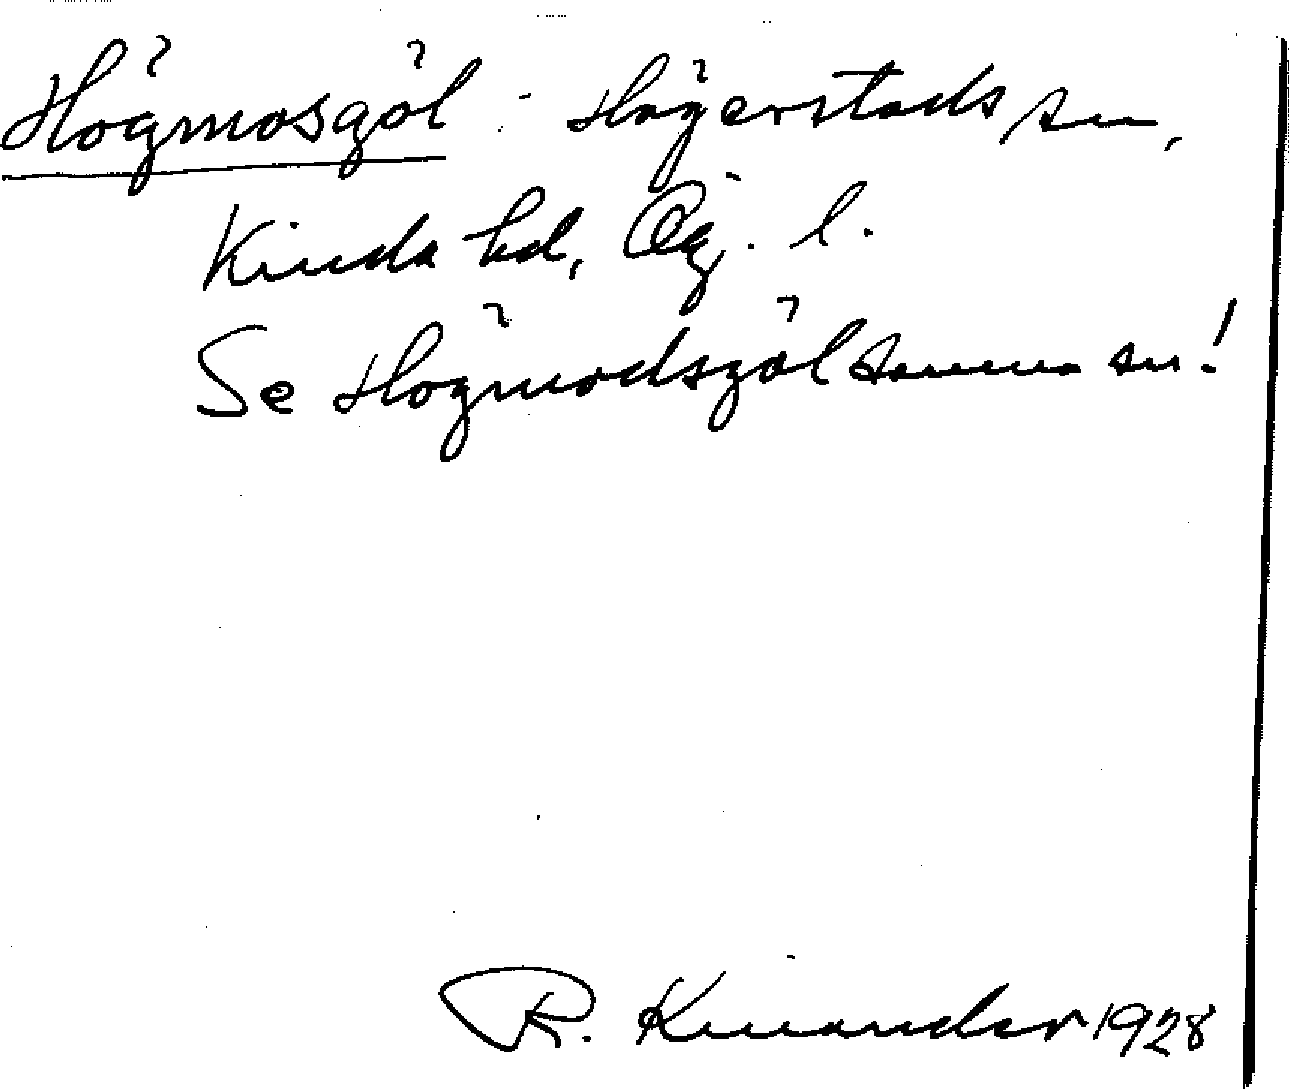 Högmosgöl : Hägerstads sn,
Kinda hd, Ög. l.
Se Högmodsgöl samma sn!
R. Kinander 1928